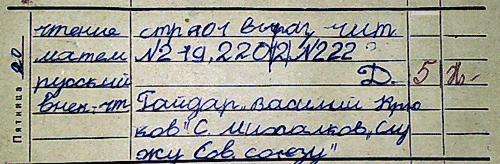 Пятница 20
чтение стр 101 выраз чит
матем №219, 220(2) №222
русский Д. 5
внек-чт Гайдар „Василий Крю
ков" С. Михалков „Слу
жу Сов. союзу"